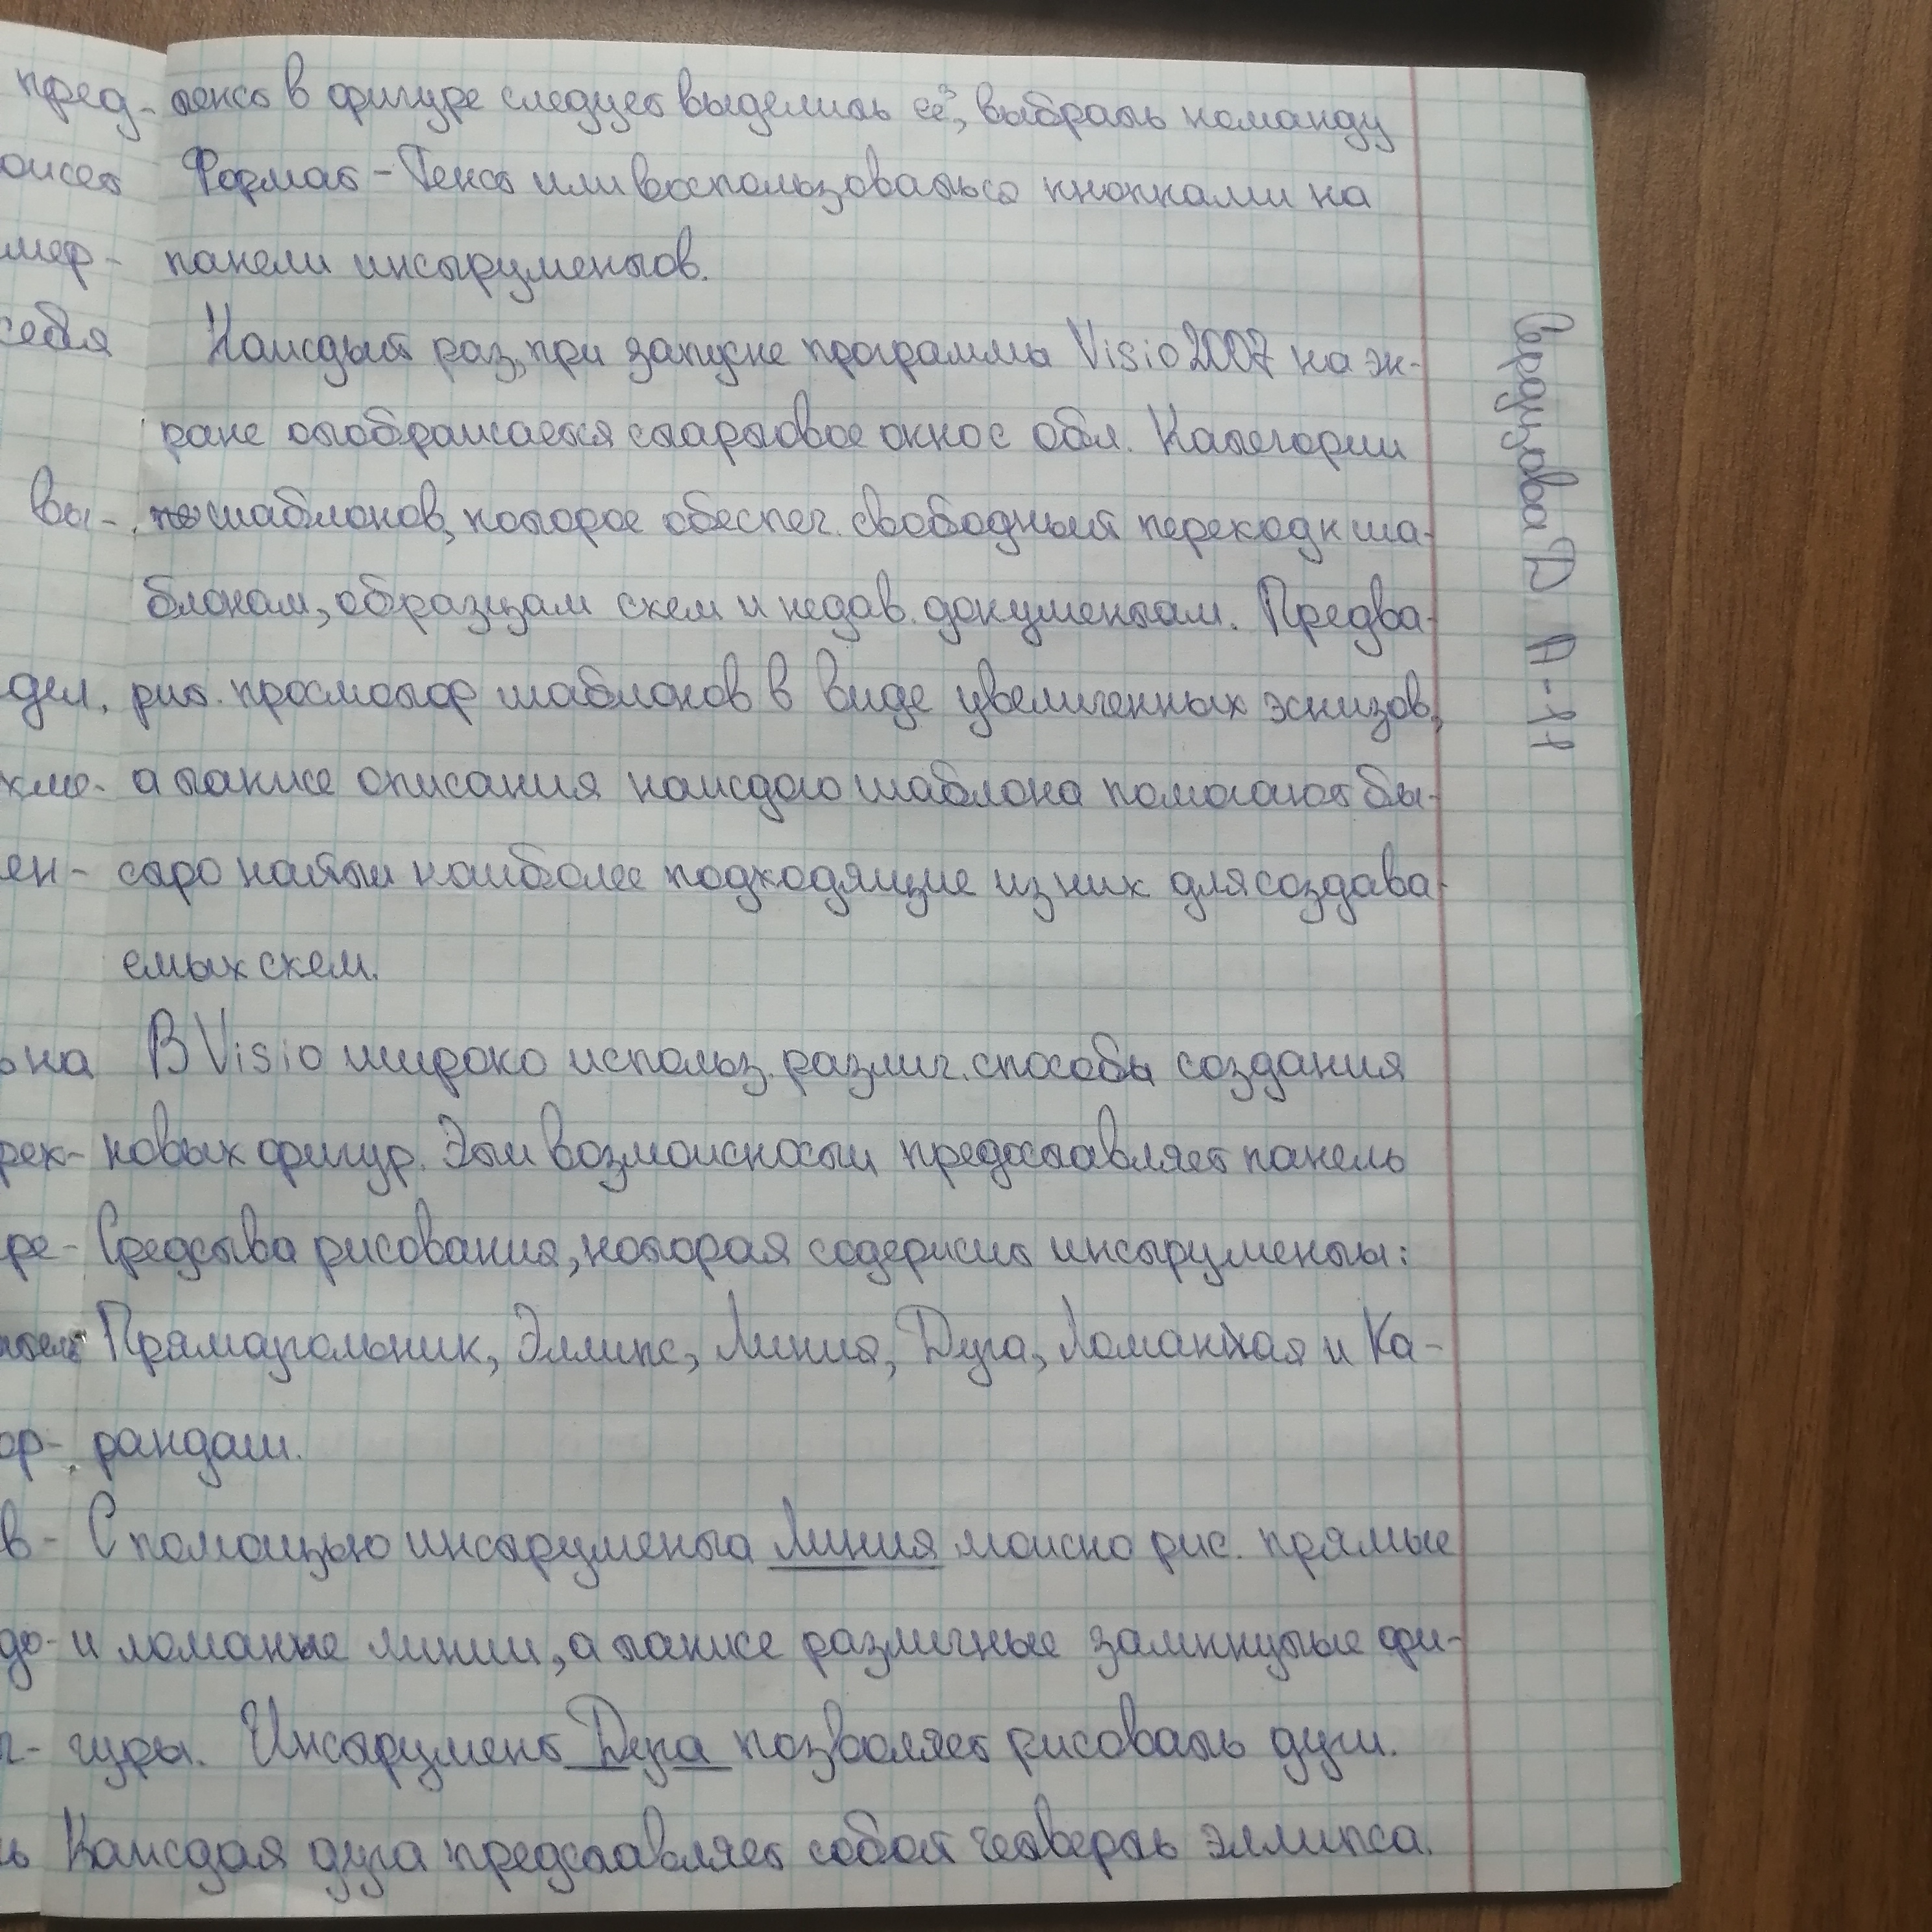 пред-
оисет
мер-
себя
вы-
дел.
хме-
ен-
ь на
рек-
ре-
ор-
в-
до-
г-
ь
текст в фигуре следует выделить её, выбрать команду
Формат - Текст или воспользоваться кнопками на
панели инструментов.
Каждый раз, при запуске программы Visio 2007 на эк-
ране отображается стартовое окно с обл. Категории
шаблонов, которое обеспеч. свободный переход к ша-
блонам, образцам схем и недав. документам. Предва-
рит. просмотр шаблонов в виде увеличенных эскизов,
а также описания каждого шаблона помогают бы-
стро найти наиболее подходящие из них для создава-
емых схем.
В Visio широко использ. различ. способы создания
новых фигур. Эти возможности предоставляет панель
Средства рисования, которая содержит инструменты:
Прямоугольник, Эллипс, Линия, Дуга, Ломанная и Ка-
рандаш.
С помощью инструмента Линия можно рис. прямые
и ломаные линии, а также различные замкнутые фи-
гуры. Инструмент Дуга позволяет рисовать дуги.
Каждая дуга представляет собой четверть эллипса.
Серазова D А-11